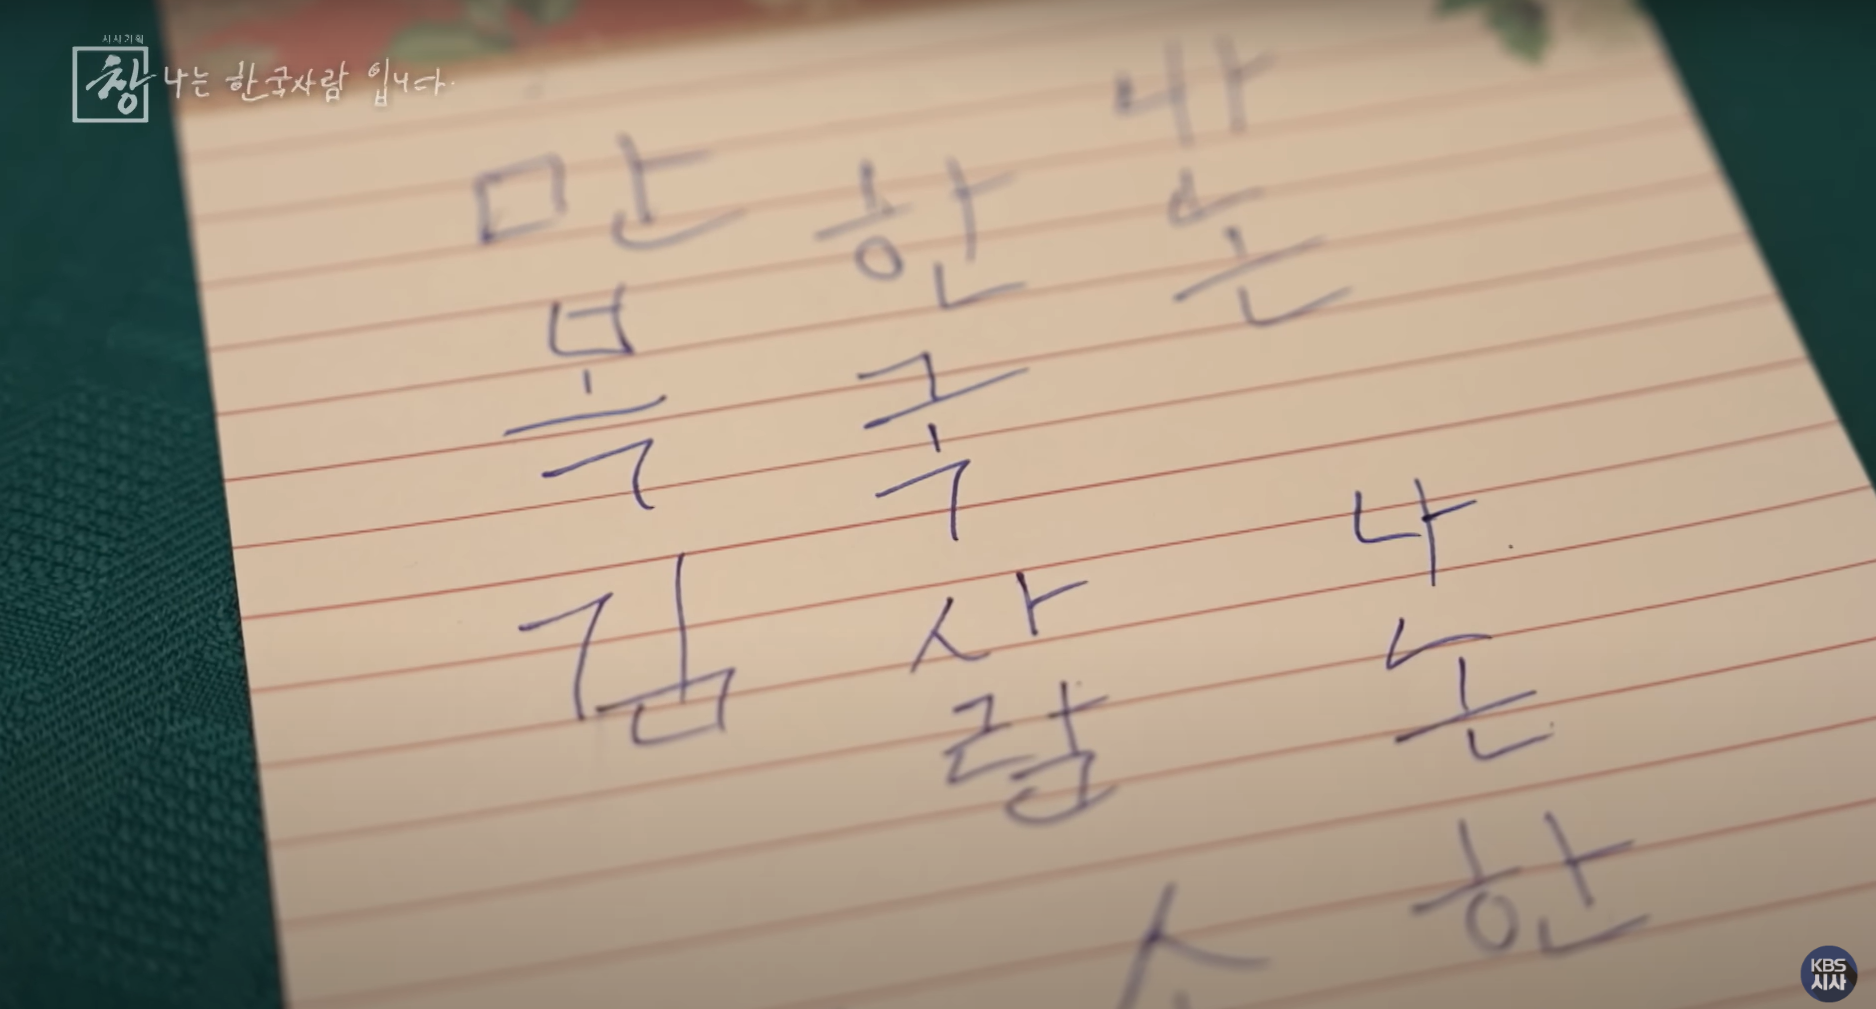 시사기획
창 나는 한국사람 입니다.
나는
한국사람
만복김
나는한
KBS
시사